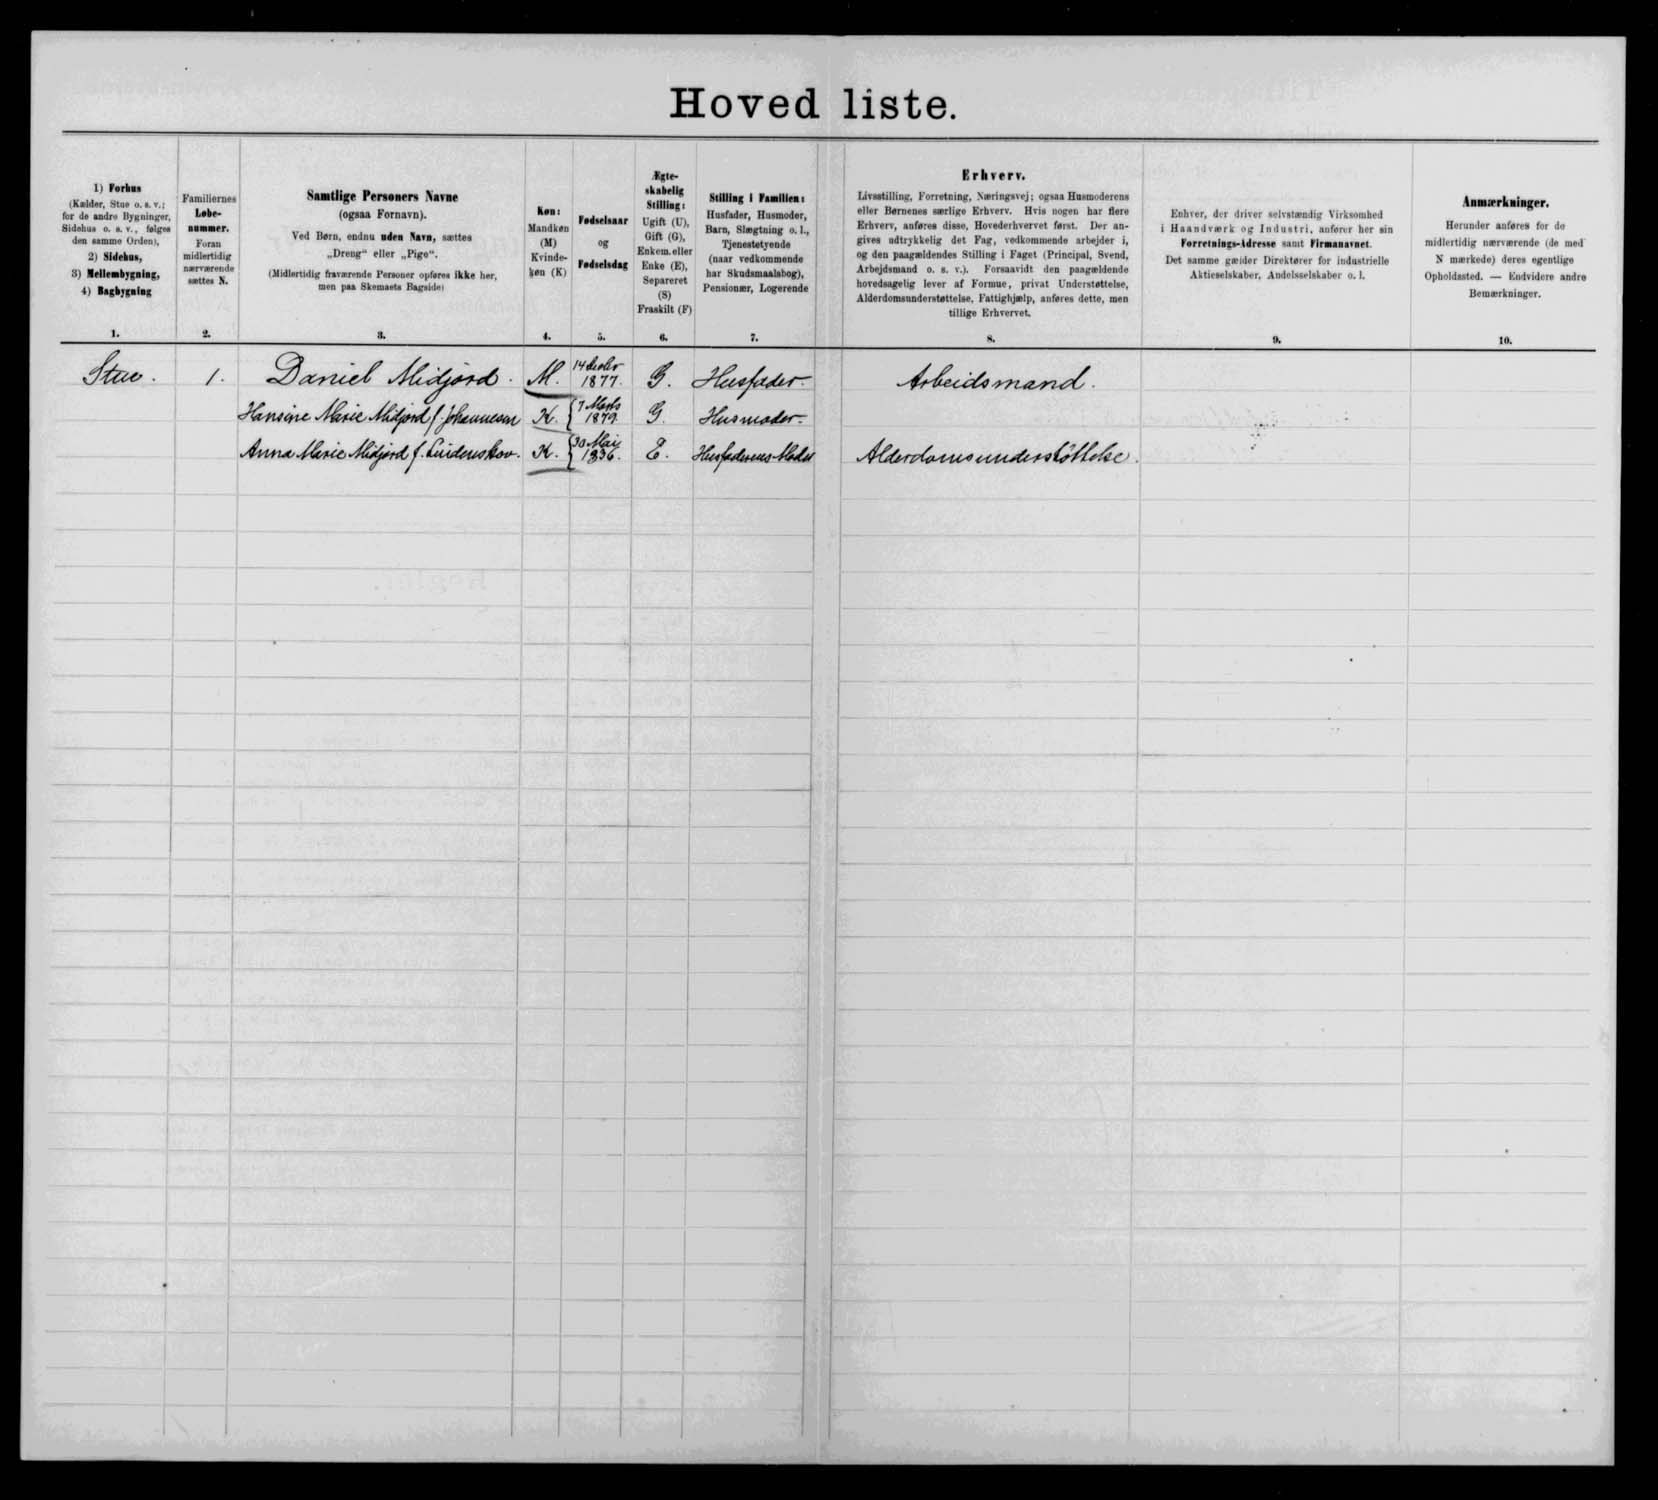 Hovedliste.
1) Forhus
(Kælder, Stue o. s. v.;
for de andre Bygninger,
Sidehus o. s. v., følges
den samme Orden),
2) Sidehus,
3) Mellembygning,
4) Bagbygning
1.
Familiernes
Løbe-
nummer.
Foran
midlertidig
nærværende
sættes N.
2.
Samtlige Personers Navne
(ogsaa Fornavn).
Ved Børn, endnu uden Navn, sættes
„Dreng“ eller „Pige“.
(Midlertidig fraværende Personer opføres ikke her,
men paa Skemaets Bagside)
3.
Køn:
Mandkøn
(M)
Kvinde-
køn (K)
4.
Fødselsaar
og
Fødselsdag
5.
Ægte-
skabelig
Stilling:
Ugift (U),
Gift (G),
Enkem. eller
Enke (E),
Separeret
(S)
Fraskilt (F)
6.
Stilling i Familien:
Husfader, Husmoder,
Barn, Slægtning o. l.,
Tjenestetyende
(naar vedkommende
har Skudsmaalsbog),
Pensionær, Logerende
7.
Erhverv.
Livsstilling, Forretning, Næringsvej; ogsaa Husmoderens
eller Børnenes særlige Erhverv. Hvis nogen har flere
Erhverv, anføres disse, Hovederhvervet først. Der an-
gives udtrykkelig det Fag, vedkommende arbejder i,
og den paagældendes Stilling i Faget (Principal, Svend,
Arbejdsmand o. s. v.). Forsaavidt den paagældende
hovedsagelig lever af Formue, privat Understøttelse,
Alderdomsunderstøttelse, Fattighjælp, anføres dette, men
tillige Erhvervet.
8.
Enhver, der driver selvstændig Virksomhed
i Haandværk og Industri, anfører her sin
Forretnings-Adresse samt Firmanavnet.
Det samme gælder Direktører for industrielle
Aktieselskaber, Andelsselskaber o. l.
9.
Anmærkninger.
Herunder anføres for de
midlertidig nærværende (de med
N mærkede) deres egentlige
Opholdssted. — Endvidere andre
Bemærkninger.
10.
Stue. 1. Daniel Midjord. M. 14 1877. G. Husfader. Arbeidsmand.
Hansine Marie Midjord f. Johannesen K. 7 Marts 1879 G. Husmoder.
Anna Marie Midjord f. Lindenskov. K. 30 Mai 1836. E. Husfaderens Moder Alderdomsunderstøttelse.